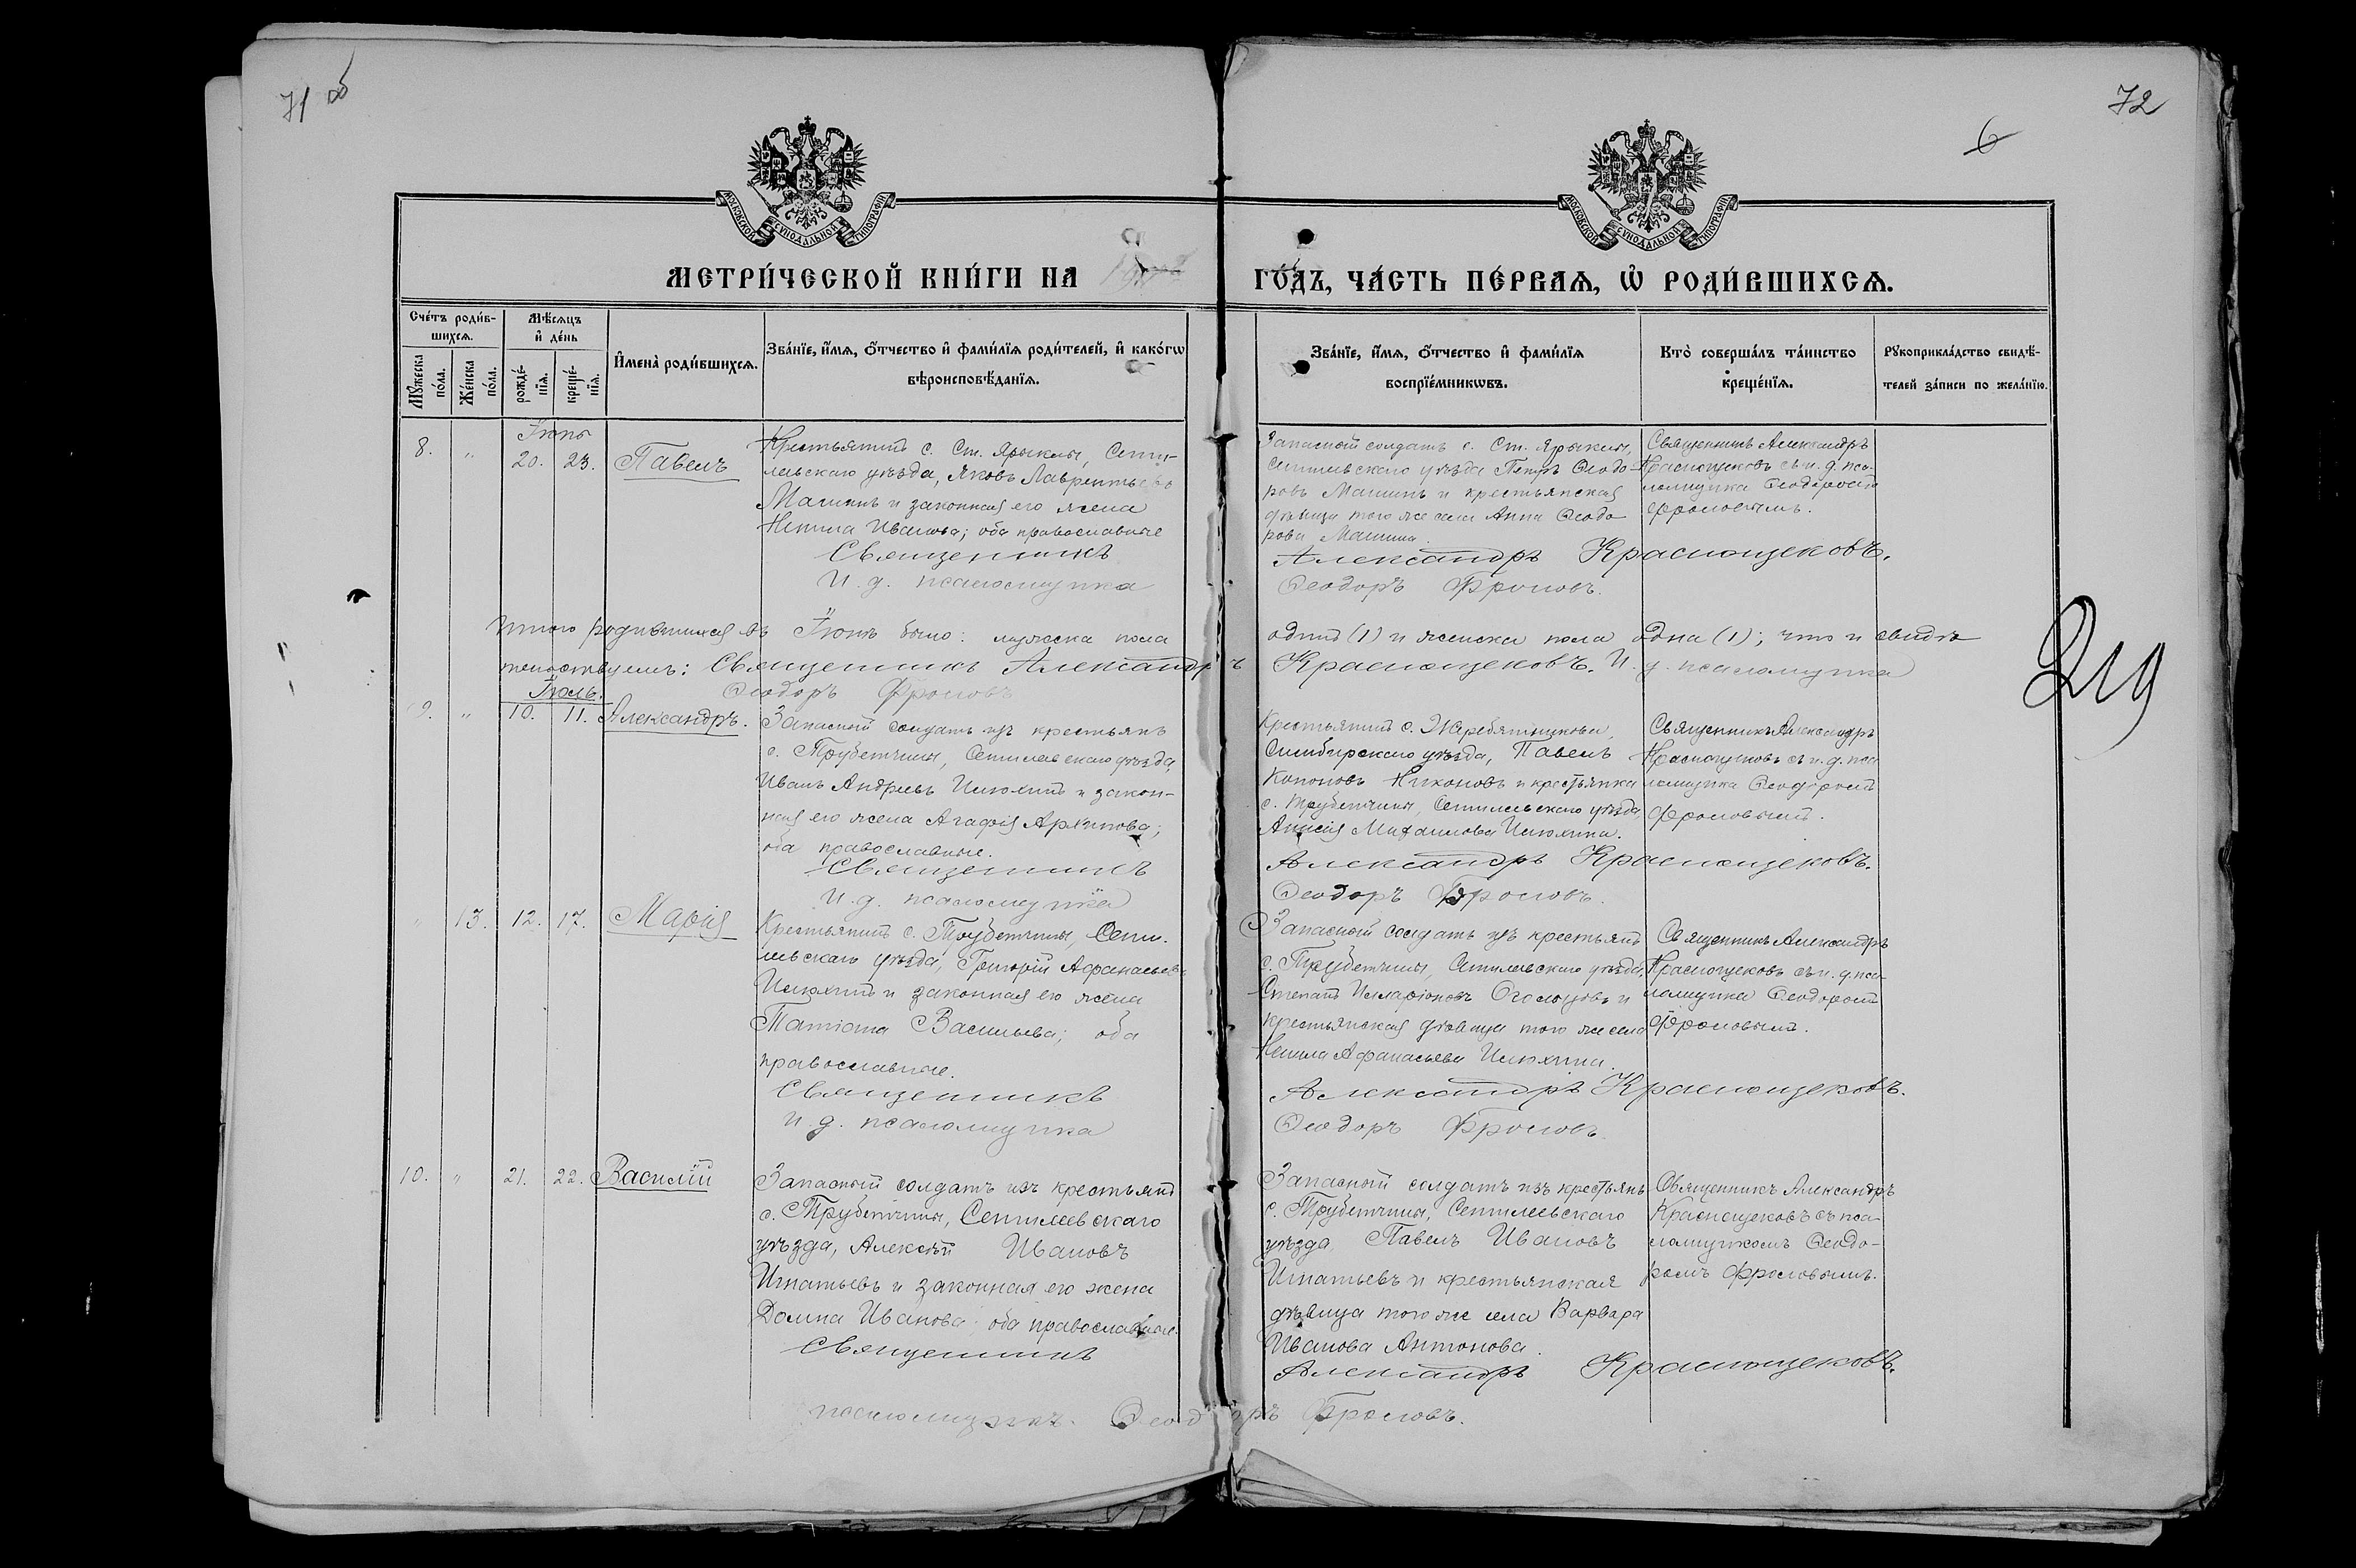 71 об
72
6
МОСКОВСКОЙ СѴНОДАЛЬНОЙ ТИПОГРАФІИ
МОСКОВСКОЙ СѴНОДАЛЬНОЙ ТИПОГРАФІИ
МЕТРИ́ЧЕСКОЙ КНИ́ГИ НА
ГО́ДЪ, ЧА́СТЬ ПЕ́РВАѦ, Ѡ РОДИ́ВШИХСѦ.
Сче́тъ роди́в-
шихсѧ.
Мꙋжеска по́ла.
Же́нска по́ла.
Мѣ́сѧцъ
и҆ де́нь
рожде́-
нїѧ.
креще́-
нїѧ.
И҆мена̀ роди́вшихсѧ.
Зва́нїе, и҆́мѧ, ѻ҆́тчество и҆ фами́лїѧ роди́телей, и҆ како́гѡ
вѣроисповѣ́данїѧ.
Зва́нїе, и҆́мѧ, ѻ҆́тчество и҆ фами́лїѧ
воспрїе́мникѡвъ.
Кто̀ соверша́лъ та́инство
креще́нїѧ.
Рꙋкоприкла́дство свидѣ́-
телей за́писи по жела́нїю.
Іюнь
8. " 20. 23. Павелъ
Крестьянинъ с. Ст. Ярыклы, Сенги-
леевскаго уѣзда, Яковъ Лаврентьевъ
Машинъ и законная его жена
Ивановa; оба православные
Священникъ
И. д. псаломщика
Запасной солдатъ с. Ст. Ярыклы,
Сенгилеевскаго уѣзда Петръ Ѳеодо-
ровъ Машинъ и крестьянская
дѣвица того же села Анна Ѳеодо
рова Машина.
Александръ Краснощековъ.
Ѳеодоръ Фроловъ.
Священникъ Александръ
Краснощековъ съ и. д. пса-
ломщика Ѳеодоромъ
Фроловымъ.
Итого родившихся въ Іюнѣ было: мужска пола одинъ (1) и женска пола одна (1); что и свидѣ
тельствуемъ: Священникъ Александръ Краснощековъ. И. д. псаломщика
Ѳеодоръ Фроловъ
Іюль.
9. " 10. 11. Александръ.
Запасной солдатъ изъ крестьянъ
с. Трубетчины, Сенгилеевскаго уѣзда,
Иванъ Андреевъ Илюхинъ и закон-
ная его жена Агафія Архипова;
оба православные.
Священникъ
И. д. псаломщика
Крестьянинъ с. Жеребятникова,
Симбирскаго уѣзда, Павелъ
Кононовъ Никоновъ и крестьянка
с. Трубетчины, Сенгилеевскаго уѣзда,
Анисія Михаилова Илюхина.
Александръ Краснощековъ.
Ѳеодоръ Фроловъ.
Священникъ Александръ
Краснощековъ съ и. д. пса
ломщика Ѳеодоромъ
Фроловымъ.
" 13. 12. 17. Марія
Крестьянинъ с. Трубетчины, Сенги-
леевскаго уѣзда, Григорій Афанасьевъ
Илюхинъ и законная его жена
Татіана Васильева; оба
православные.
Священникъ
И. д. псаломщика
Запасной солдатъ изъ крестьянъ
с. Трубетчины, Сенгилеевскаго уѣзда,
Степанъ Илларіоновъ и
крестьянская дѣвица того же села
Афанасьева Илюхина.
Александръ Краснощековъ.
Ѳеодоръ Фроловъ.
Священникъ Александръ
Краснощековъ съ и. д. пса-
ломщика Ѳеодоромъ
Фроловымъ.
10. " 21. 22. Василій
Запасный солдатъ изъ крестьянъ
с. Трубетчины, Сенгилеевскаго
уѣзда, Алексѣй Ивановъ
Игнатьевъ и законная его жена
Домна Иванова оба православные.
Священникъ
Запасный солдатъ изъ крестьянъ
с. Трубетчины, Сенгилеевскаго
уѣзда Павелъ Ивановъ
Игнатьевъ и крестьянская
дѣвица того же села Варвара
Иванова Антонова.
Александръ Краснощековъ.
Священникъ Александръ
Краснощековъ съ пса-
ломщикомъ Ѳеодо-
ромъ Фроловымъ.
псаломщикъ Ѳеодоръ Фроловъ.